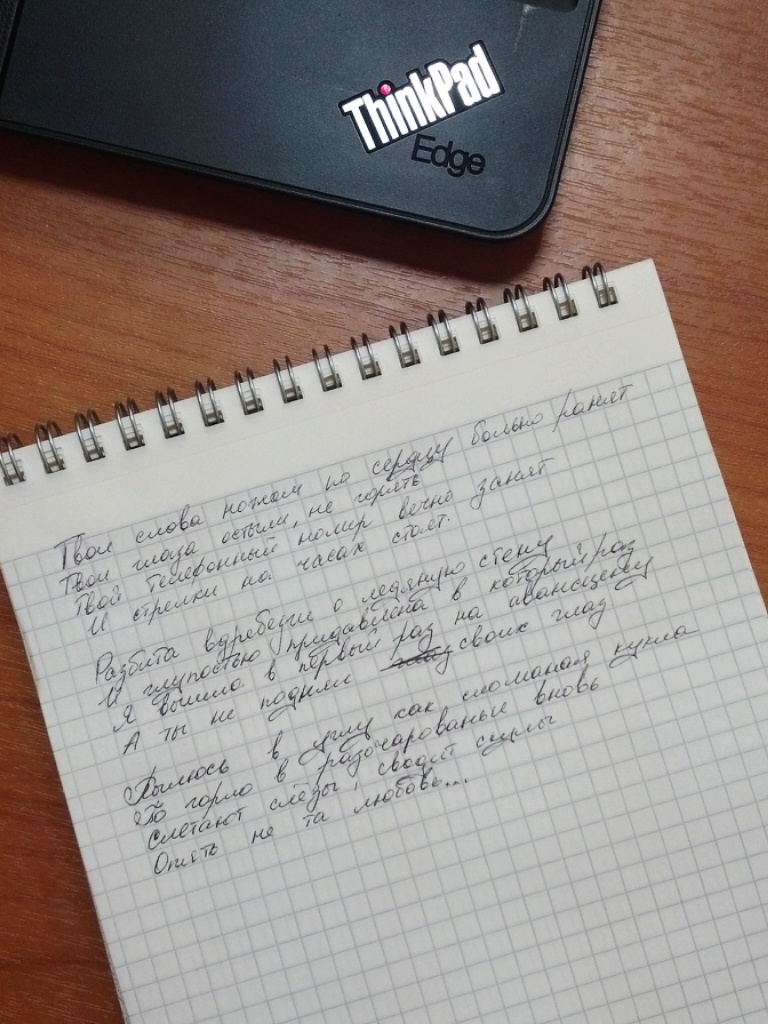 ThinkPad
Edge
Твои слова ножом по сердцу больно ранят
Твои глаза остыли, не горят
Твой телефонный номер вечно занят
И стрелки на часах стоят.
Разбита вдребезги о ледяную стену
И глупостью придавлена в который раз
Я вышла в первый раз на авансцену
А ты не поднял своих глаз
Пылюсь в углу как сломаная кукла
По горло в разочарованье вновь
Слетают слёзы, сводит скулы
Опять не та любовь...